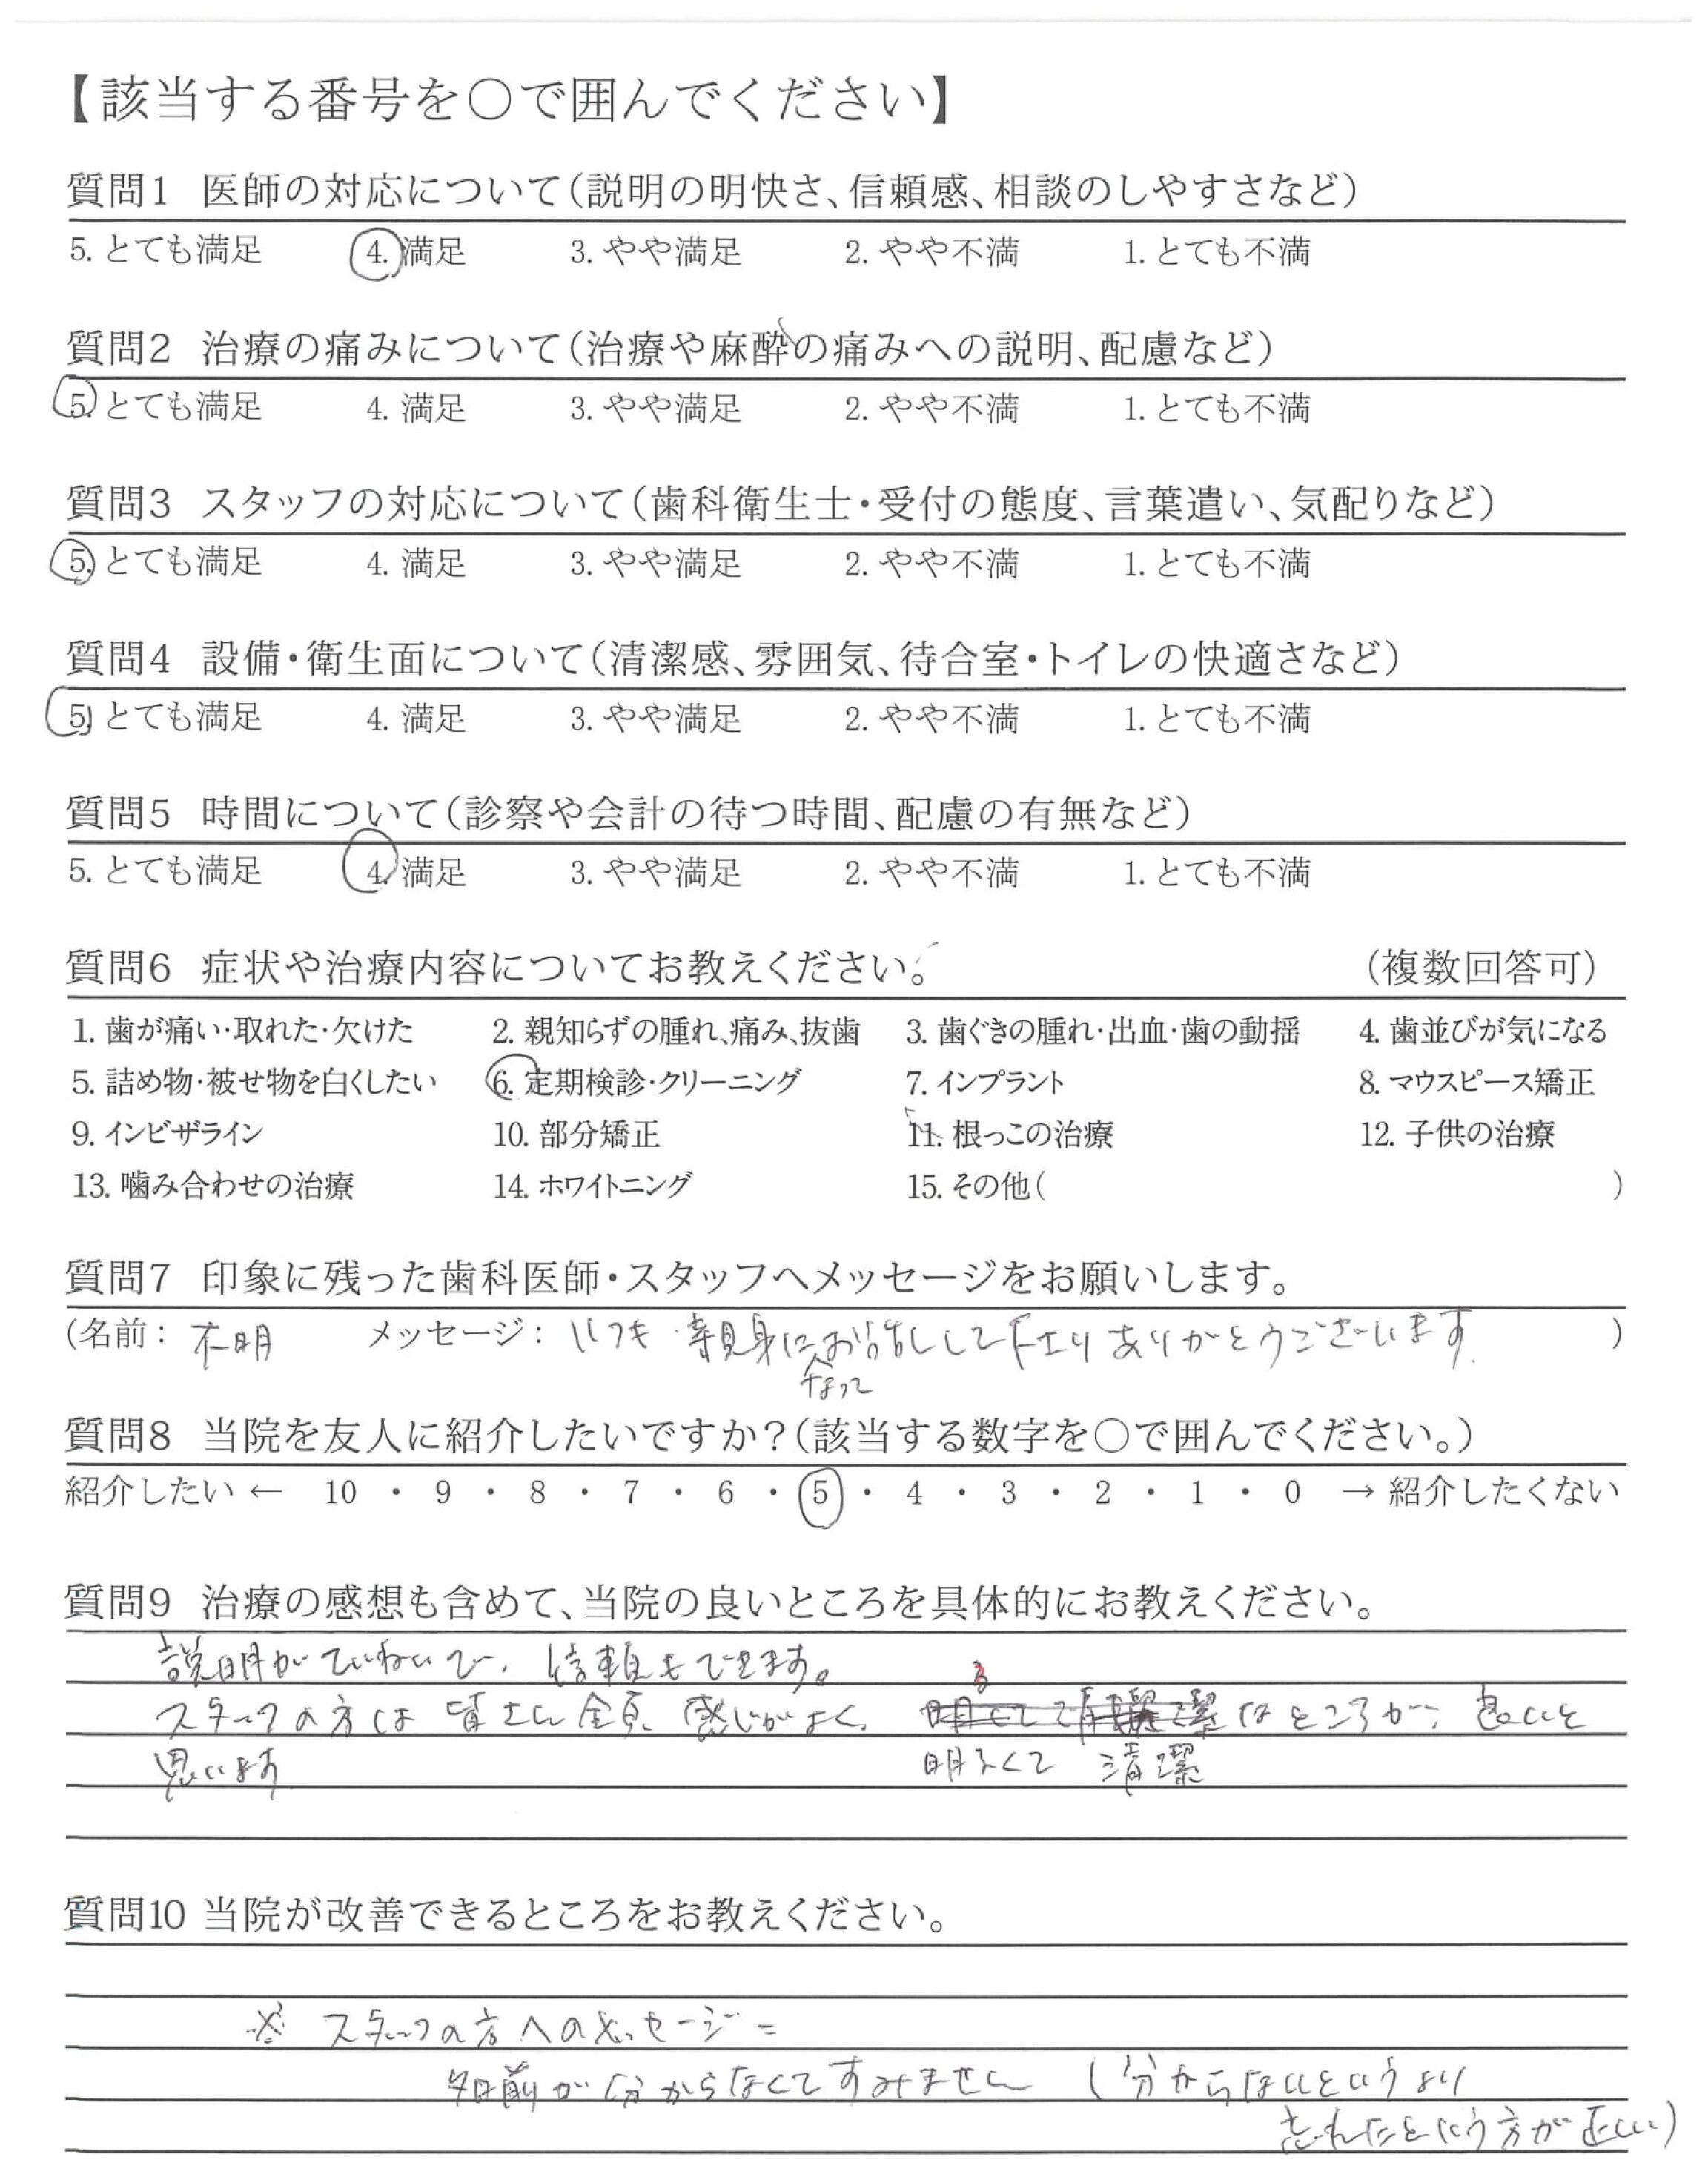 【該当する番号を○で囲んでください】
質問1 医師の対応について(説明の明快さ、信頼感、相談のしやすさなど)
5. とても満足 4. 満足 3. やや満足 2. やや不満 1. とても不満
質問2 治療の痛みについて(治療や麻酔の痛みへの説明、配慮など)
5. とても満足 4. 満足 3. やや満足 2. やや不満 1. とても不満
質問3 スタッフの対応について(歯科衛生士・受付の態度、言葉遣い、気配りなど)
5. とても満足 4. 満足 3. やや満足 2. やや不満 1. とても不満
質問4 設備・衛生面について(清潔感、雰囲気、待合室・トイレの快適さなど)
5. とても満足 4. 満足 3. やや満足 2. やや不満 1. とても不満
質問5 時間について(診察や会計の待つ時間、配慮の有無など)
5. とても満足 4. 満足 3. やや満足 2. やや不満 1. とても不満
質問6 症状や治療内容についてお教えください。 (複数回答可)
1. 歯が痛い・取れた・欠けた 2. 親知らずの腫れ、痛み、抜歯 3. 歯ぐきの腫れ・出血・歯の動揺 4. 歯並びが気になる
5. 詰め物・被せ物を白くしたい 6. 定期検診・クリーニング 7. インプラント 8. マウスピース矯正
9. インビザライン 10. 部分矯正 11. 根っこの治療 12. 子供の治療
13. 噛み合わせの治療 14. ホワイトニング 15. その他( )
質問7 印象に残った歯科医師・スタッフへメッセージをお願いします。
(名前: 不明 メッセージ: いつも 親身にお話しして下さりありがとうございます )
なって
質問8 当院を友人に紹介したいですか?(該当する数字を○で囲んでください。)
紹介したい ← 10 ・ 9 ・ 8 ・ 7 ・ 6 ・ 5 ・ 4 ・ 3 ・ 2 ・ 1 ・ 0 → 紹介したくない
質問9 治療の感想も含めて、当院の良いところを具体的にお教えください。
説明がていねいで、信頼もできます。
スタッフの方は皆さん全員、感じがよく、 なところが、良いと
思います 明るくて 清潔
質問10 当院が改善できるところをお教えください。
※ スタッフの方へのメッセージ=
名前が分からなくてすみません (分からないというより
忘れたという方が正しい)